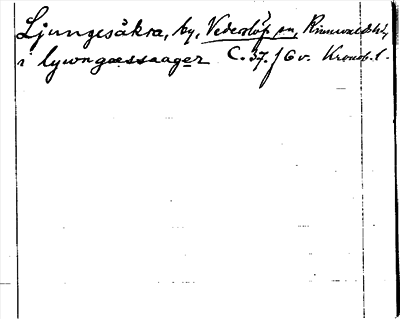 Ljungesåkra, by, Vederslöf sn, Kinnevalds hd,
i lywngæssaager C. 37. f 6 v. Kronob. l.